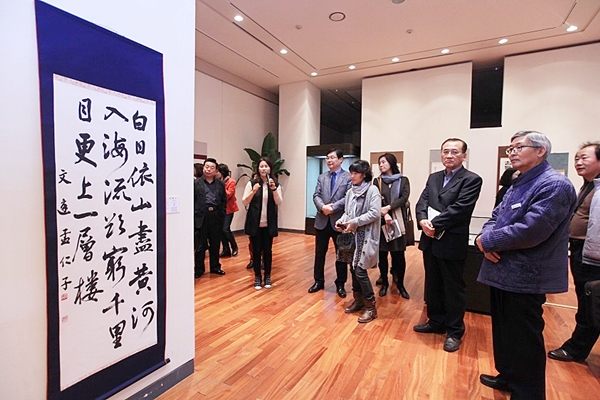 白日依山盡黃河
入海流欲窮千里
目更上一層樓
文 孟仁子